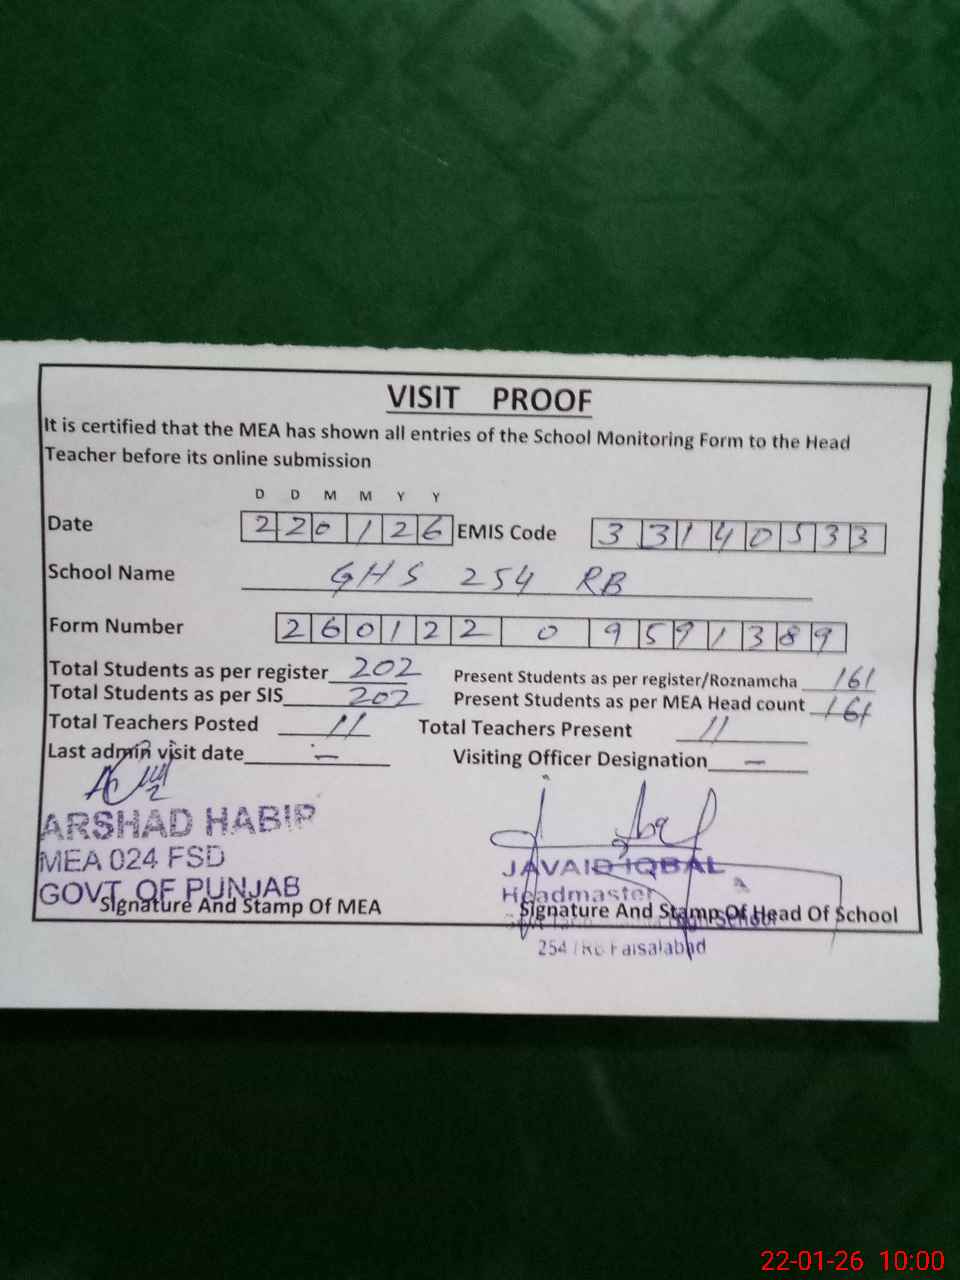 VISIT PROOF
It is certified that the MEA has shown all entries of the School Monitoring Form to the Head
Teacher before its online submission
D D M M Y Y
Date 2 2 0 1 2 6 EMIS Code 3 3 1 4 0 5 3 3
School Name GHS 254 RB
Form Number 2 6 0 1 2 2 0 9 5 9 1 3 8 9
Total Students as per register 202 Present Students as per register/Roznamcha 161
Total Students as per SIS 202 Present Students as per MEA Head count 161
Total Teachers Posted 11 Total Teachers Present 11
Last admin visit date — Visiting Officer Designation —
ARSHAD HABIB
MEA 024 FSD
GOVT. OF PUNJAB
Signature And Stamp Of MEA
JAVAID IQBAL
Headmaster
High School
254 / RB Faisalabad
Signature And Stamp Of Head Of School
22-01-26 10:00